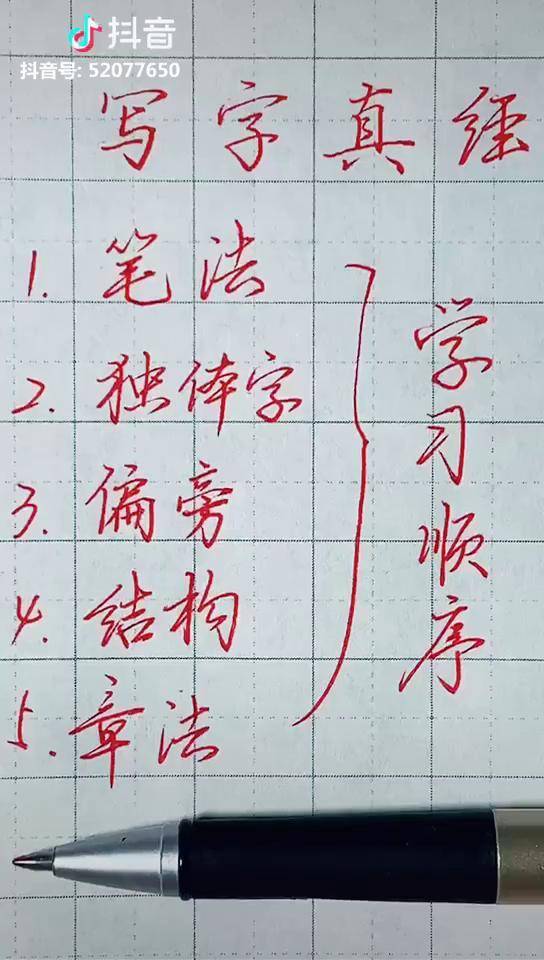 抖音
抖音号: 52077650
写字真经
1. 笔法
2. 独体字
3. 偏旁
4. 结构
5. 章法
学习顺序